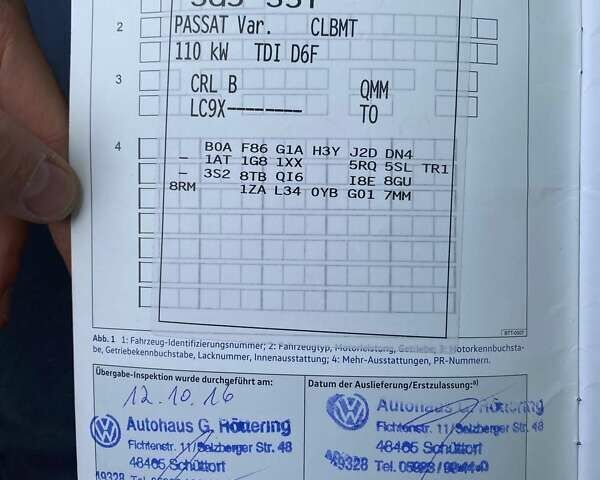 2 PASSAT Var. CLBMT
110 kW TDI D6F
3 CRL B QMM
LC9X-------- TO
4 B0A F86 G1A H3Y J2D DN4
- 1AT 1G8 1XX 5RQ 5SL TR1
- 3S2 8TB QI6 I8E 8GU
8RM 1ZA L34 0YB G01 7MM
BTT-0507
Abb. 1 1: Fahrzeug-Identifizierungsnummer; 2: Fahrzeugtyp, Motorleistung, Getriebe; 3: Motorkennbuchsta-
be, Getriebekennbuchstabe, Lacknummer, Innenausstattung; 4: Mehr-Ausstattungen, PR-Nummern.
Übergabe-Inspektion wurde durchgeführt am:
12.10.16
Autohaus G. Röttering
Fichtenstr. 11/Salzberger Str. 48
48465 Schüttorf
49328
Datum der Auslieferung/Erstzulassung:a)
Autohaus G. Röttering
Fichtenstr. 11/Salzberger Str. 48
48465 Schüttorf
49328 Tel.